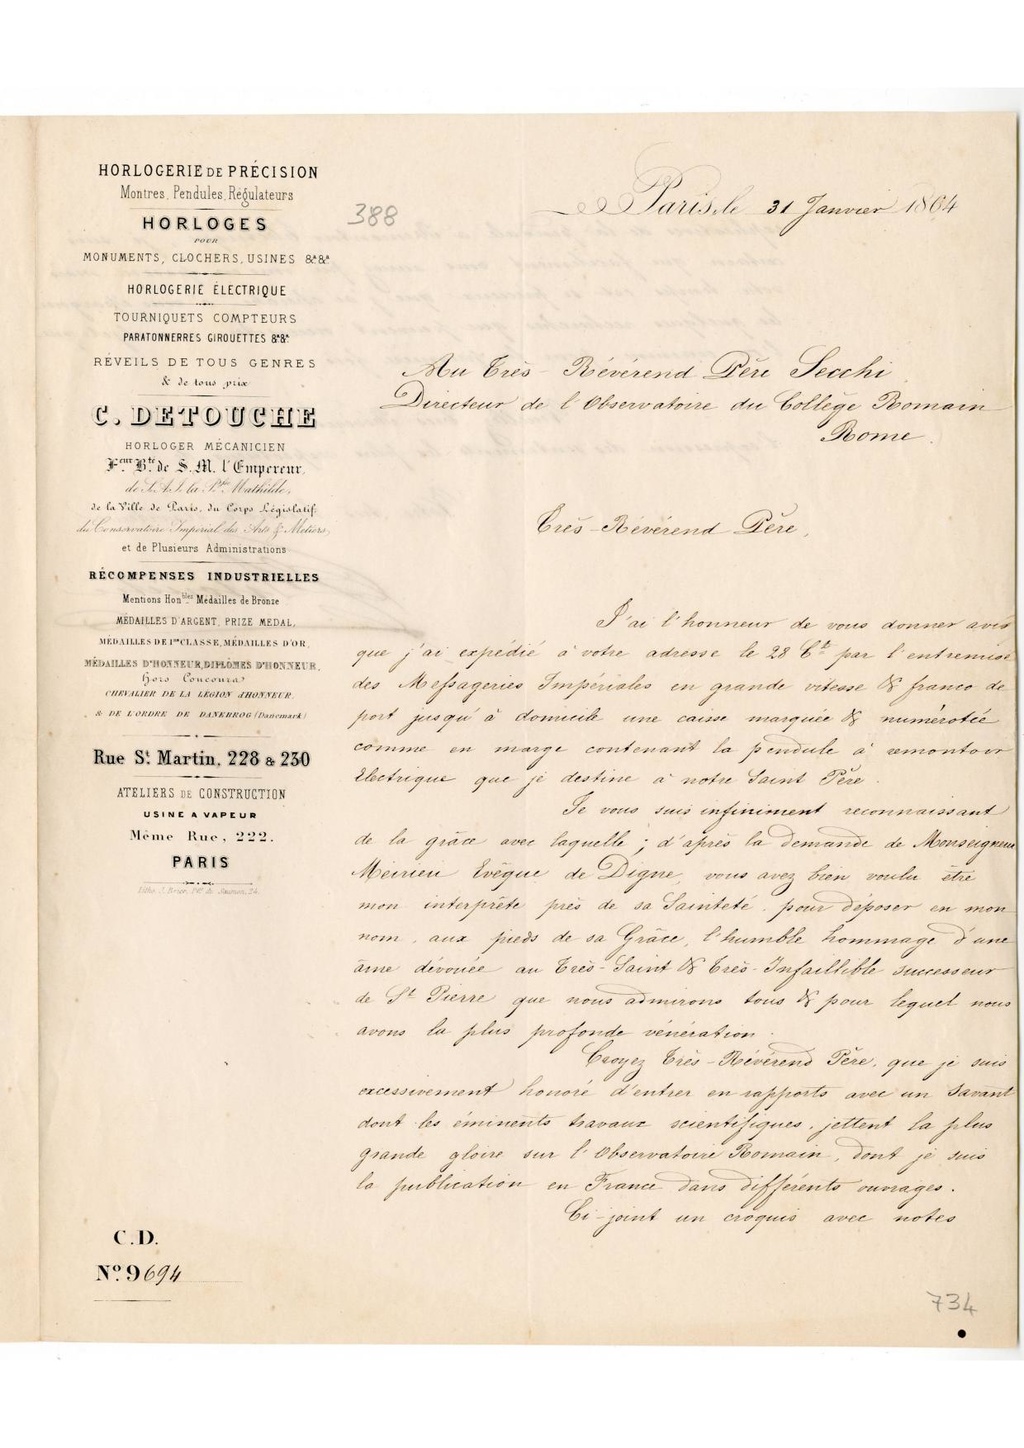 HORLOGERIE DE PRÉCISION
Montres, Pendules, Régulateurs
HORLOGES
POUR
MONUMENTS, CLOCHERS, USINES &ª &ª
HORLOGERIE ÉLECTRIQUE
TOURNIQUETS COMPTEURS
PARATONNERRES GIROUETTES &ª &ª
RÉVEILS DE TOUS GENRES
& de tous prix
C. DETOUCHE
HORLOGER MÉCANICIEN
Feur Bté de S. M. l'Empereur,
de S. A. I. la Psse Mathilde,
de la Ville de Paris, du Corps Législatif
du Conservatoire Impérial des Arts & Métiers,
et de Plusieurs Administrations
RÉCOMPENSES INDUSTRIELLES
Mentions Honbles Médailles de Bronze
MÉDAILLES D'ARGENT, PRIZE MEDAL,
MÉDAILLES DE 1re CLASSE, MÉDAILLES D'OR,
MÉDAILLES D'HONNEUR, DIPLÔMES D'HONNEUR,
Hors Concours
CHEVALIER DE LA LÉGION d'HONNEUR
& DE L'ORDRE DE DANEBROG (Danemark)
Rue St Martin, 228 & 230
ATELIERS DE CONSTRUCTION
USINE A VAPEUR
Même Rue, 222.
PARIS
C.D.
No 9694
388
Paris, le 31 Janvier 1864
Au Très-Révérend Père Secchi
Directeur de l'Observatoire du Collège Romain
Rome.
Très-Révérend Père,
J'ai l'honneur de vous donner avis
que j'ai expédié à votre adresse le 28 Ct par l'entremise
des Messageries Impériales en grande vitesse & franco de
port jusqu'à domicile une caisse marquée & numérotée
comme en marge contenant la pendule à remontoir
Electrique que je destine à notre Saint Père.
Je vous suis infiniment reconnaissant
de la grâce avec laquelle ; d'après la demande de Monseigneur
Meirieu Evêque de Digne, vous avez bien voulu être
mon interprête près de sa Sainteté, pour déposer en mon
nom, aux pieds de sa Grâce, l'humble hommage d'une
âme dévouée au Très-Saint & Très-Infaillible successeur
de St Pierre que nous admirons tous & pour lequel nous
avons la plus profonde vénération.
Croyez Très-Révérend Père, que je suis
excessivement honoré d'entrer en rapports avec un Savant
dont les éminents travaux scientifiques, jettent la plus
grande gloire sur l'Observatoire Romain, dont je suis
la publication en France dans différents ouvrages.
Ci-joint un croquis avec notes
734